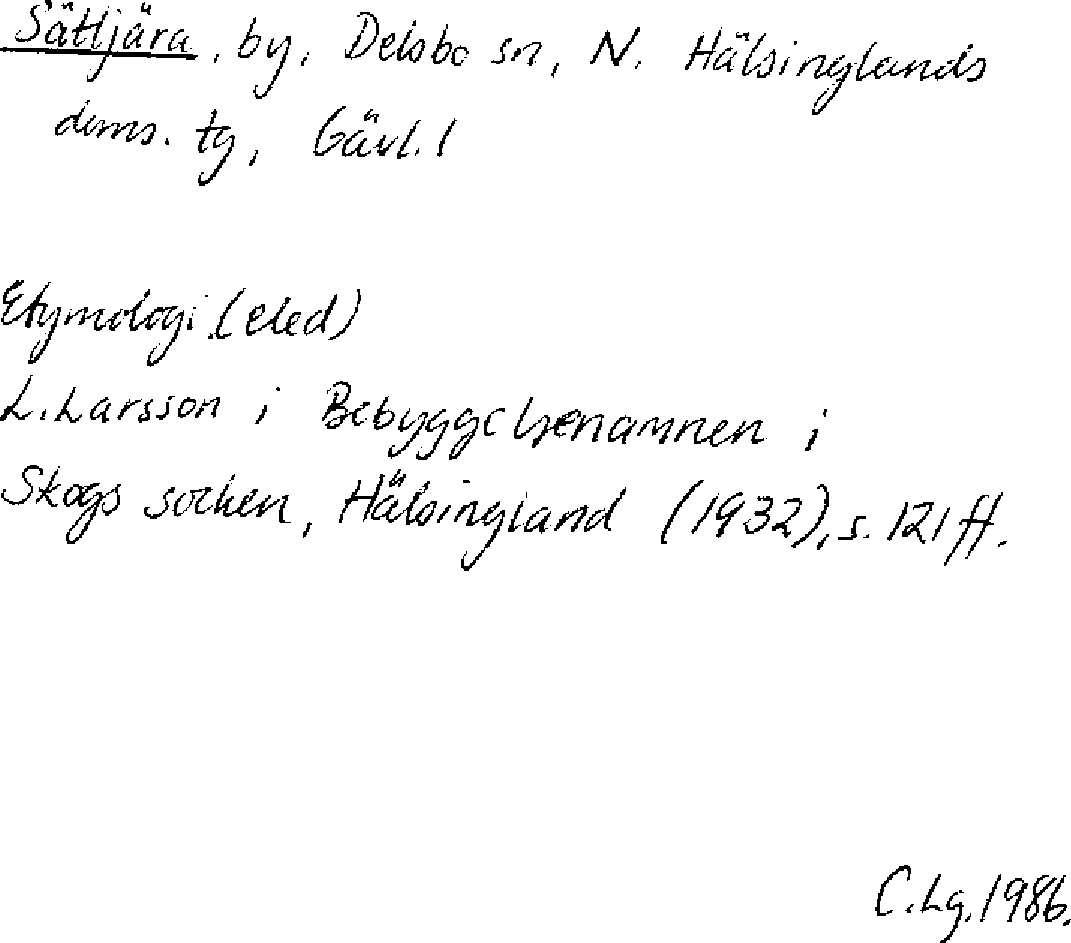 Sättjära, by, Delsbo sn, N. Hälsinglands
doms. tg, Gävl. l
Etymologi (eled)
L. Larsson i Bebyggelsenamnen i
Skogs socken, Hälsingland (1932), s. 121 ff.
C. Lg. 1986.